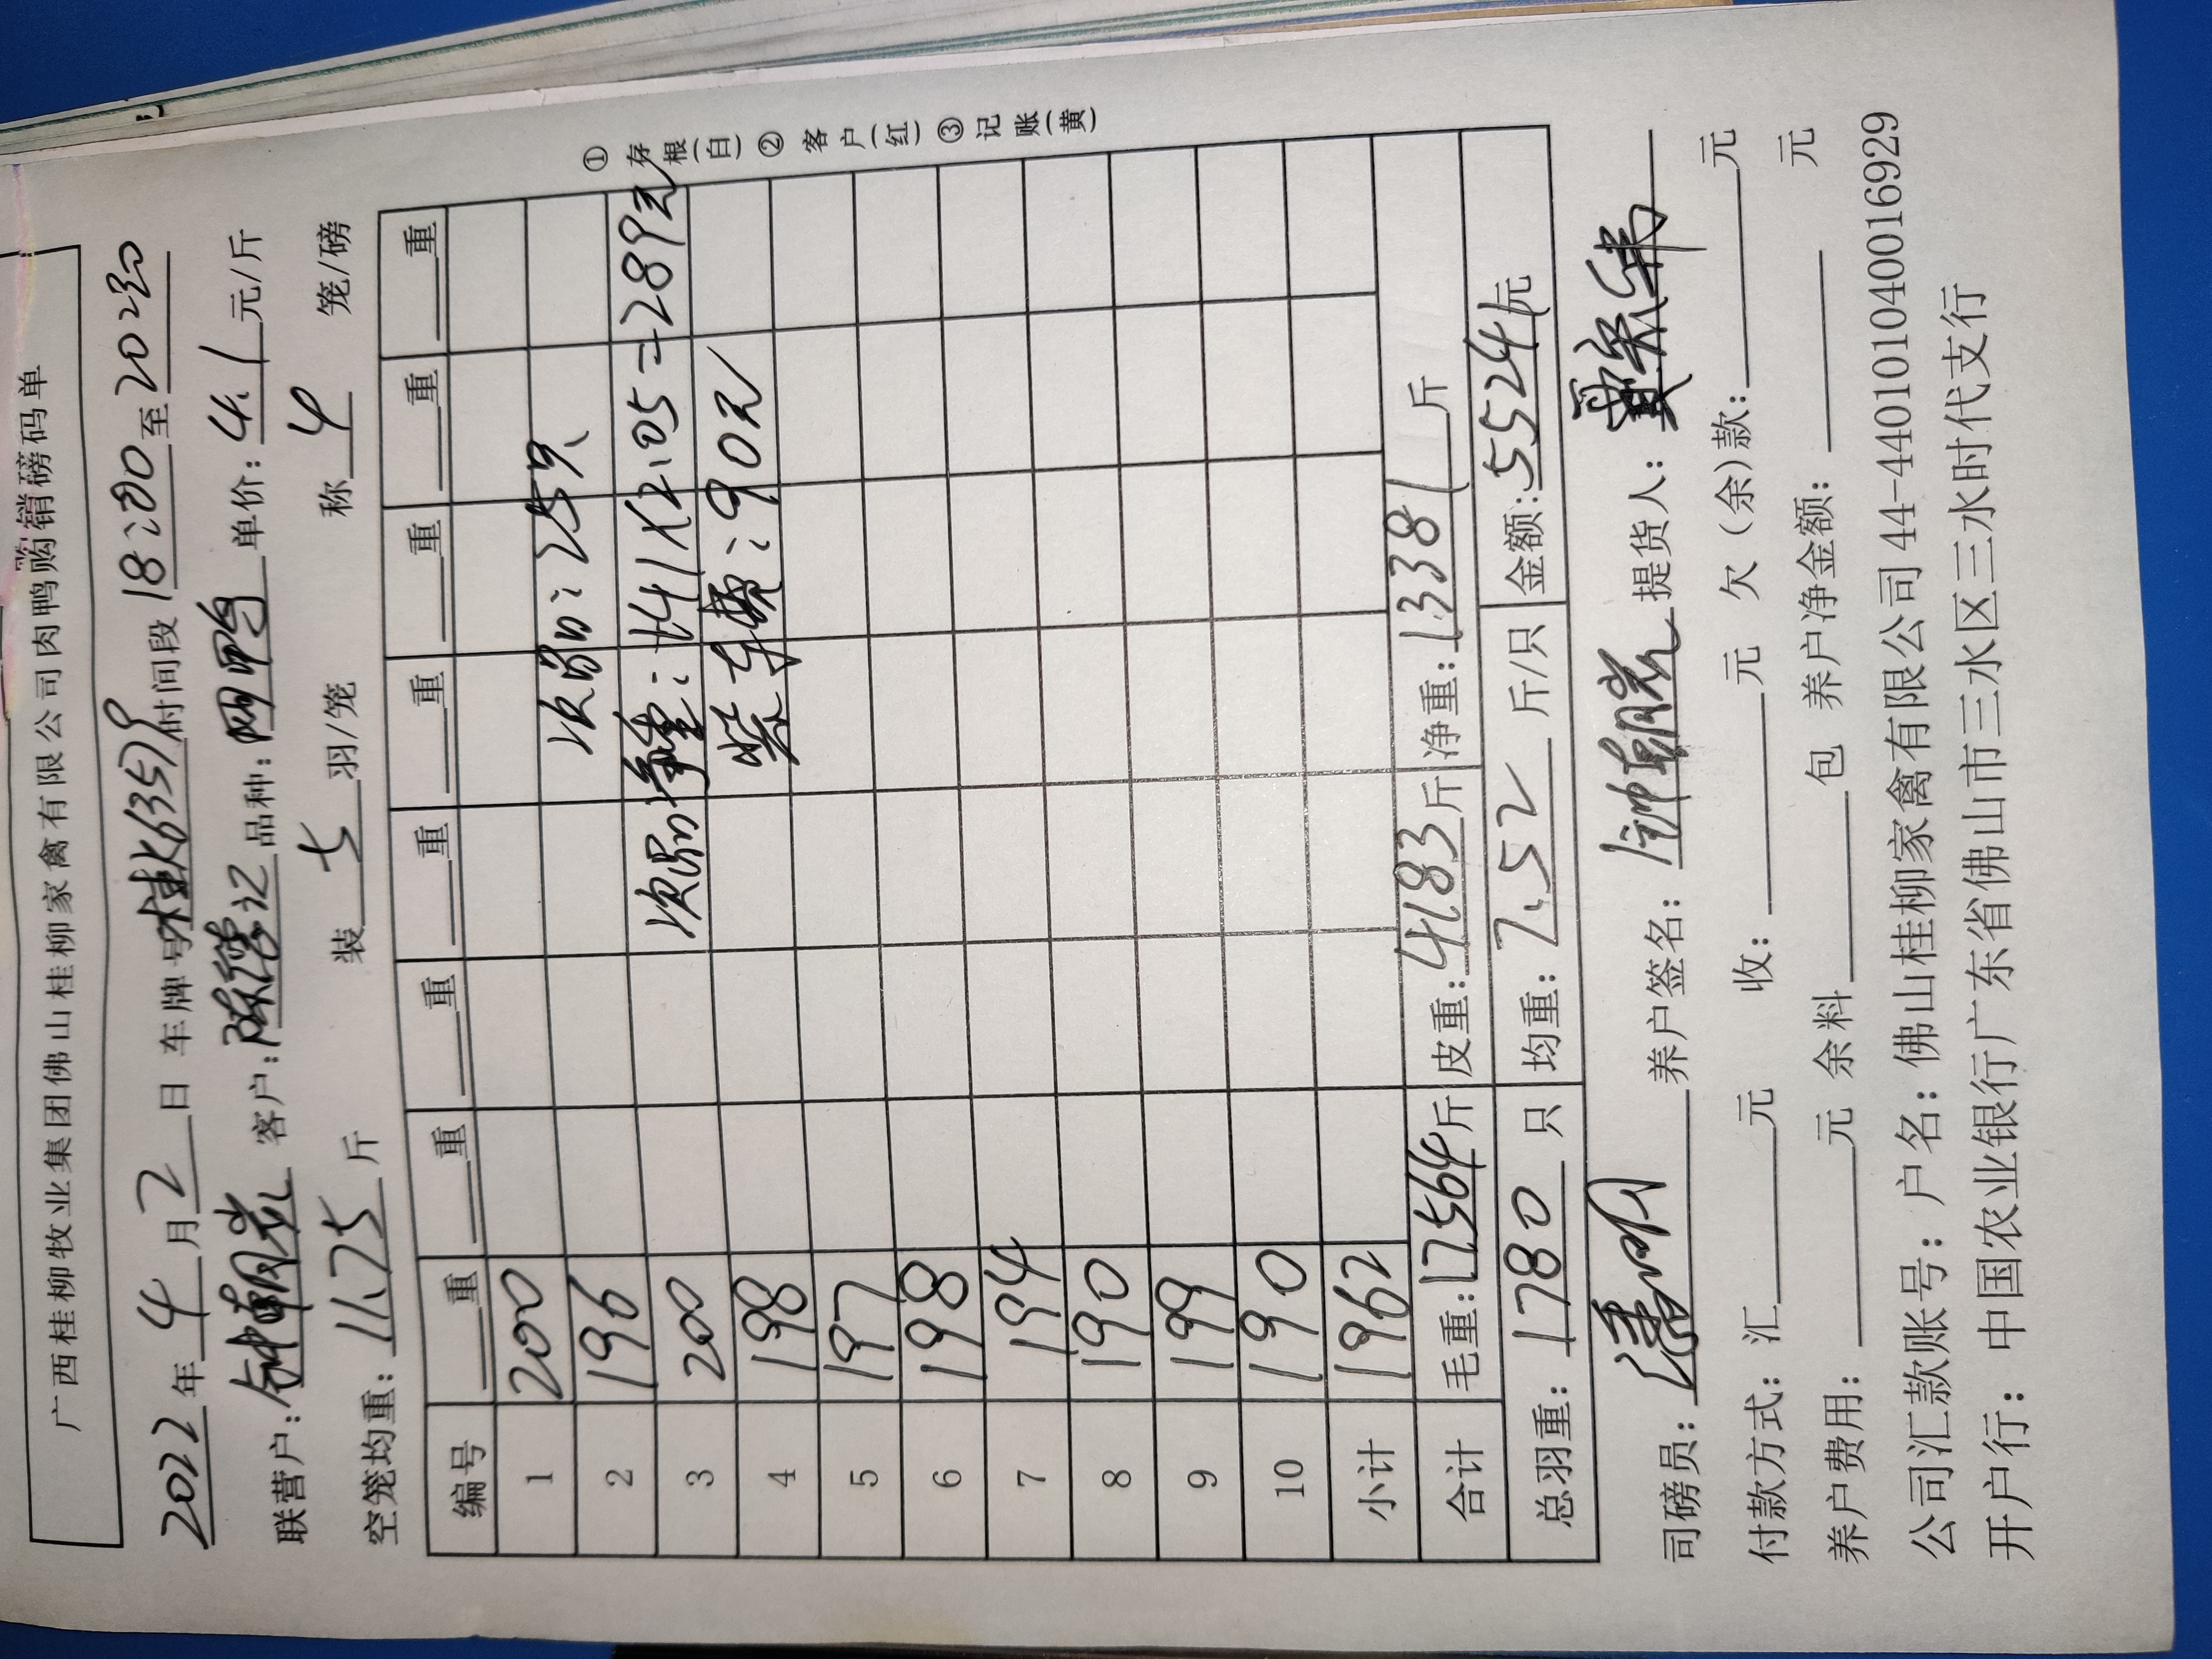 广西桂柳牧业集团佛山桂柳家禽有限公司肉鸭购销磅码单
2022年4月2日 车牌号桂K63579时间段18:00至2030
联营户: 客户: 品种: 单价:4.1元/斤
空笼均重:11.75斤 装七羽/笼 称4笼/磅
编号 重 重 重 重 重 重 重 重
1 200
2 196 次品:25只
3 200 次品净重:141X2.05=289元
4 198 柴车费:90元
5 197
6 198
7 194
8 190
9 199
10 190
小计 1962
合计 毛重:17564斤 皮重:4183斤 净重:13381斤
总羽重:1780只 均重:7.52斤/只 金额:55241元
司磅员: 养户签名: 提货人:
付款方式:汇 元 收: 元 欠(余)款: 元
养户费用: 元 余料 包 养户净金额: 元
公司汇款账号:户名:佛山桂柳家禽有限公司44-440101040016929
开户行:中国农业银行广东省佛山市三水区三水时代支行
①存根(白)②客户(红)③记账(黄)